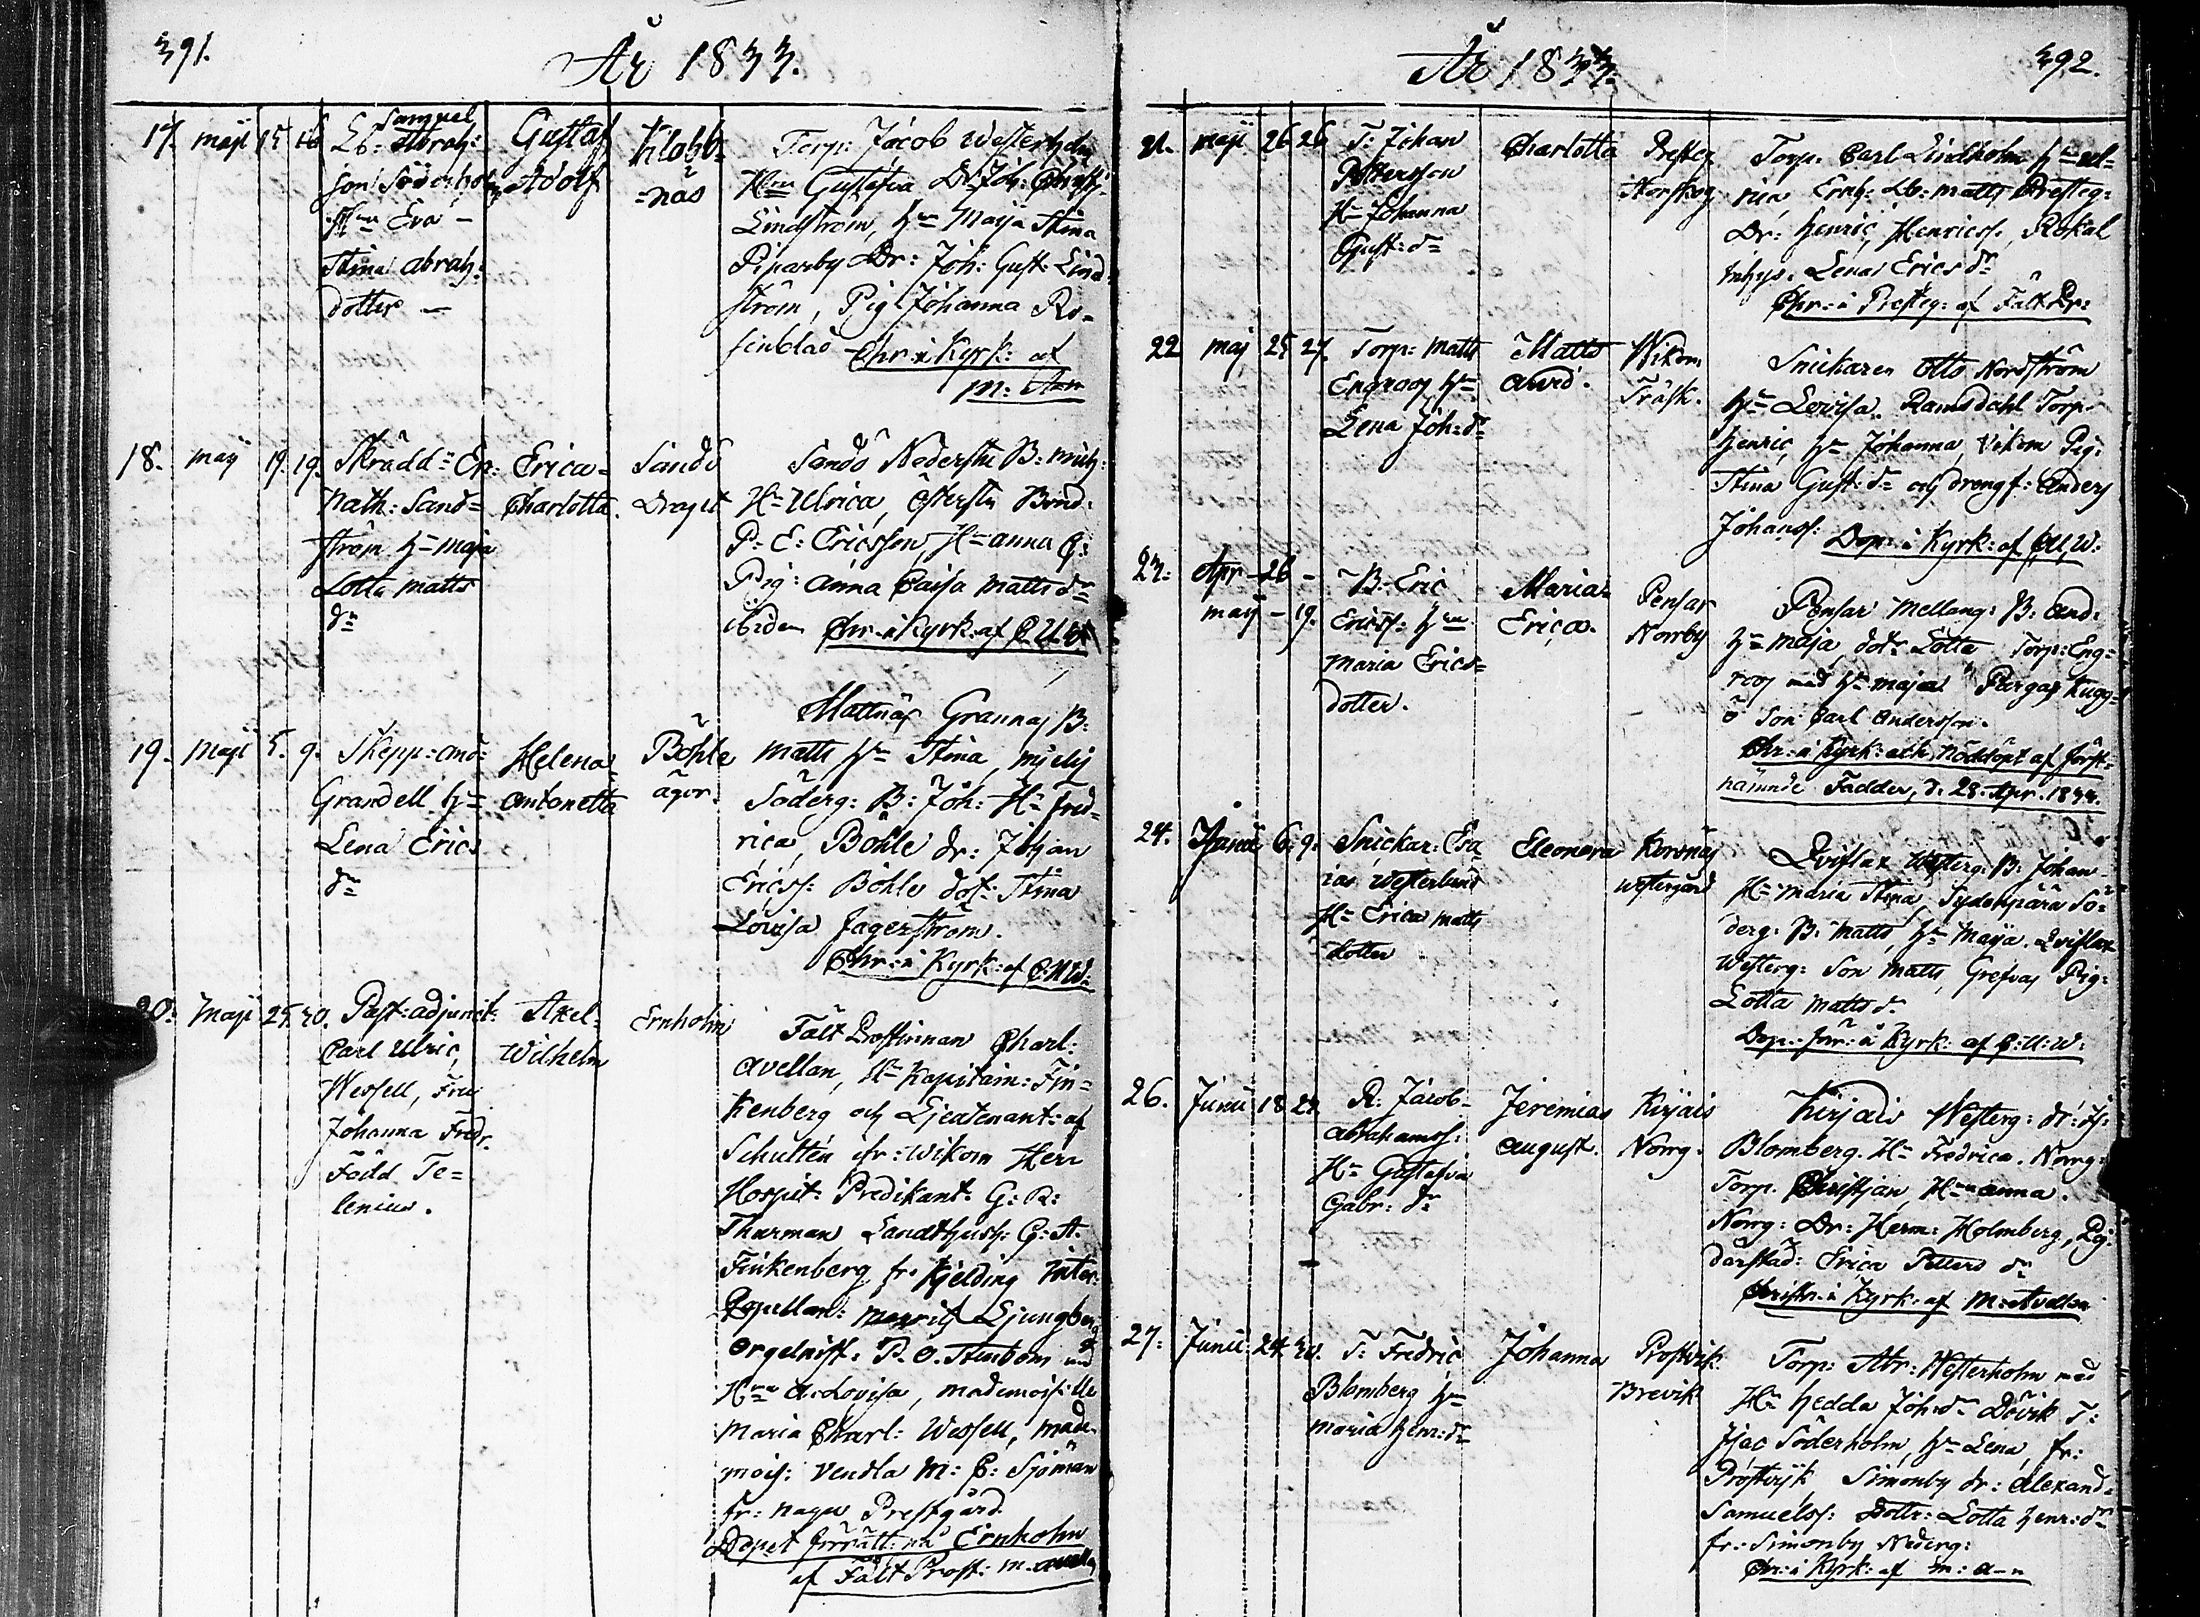 391.
År 1833.
17. maji 15 16 Eb: Samuel Abrah:
son Söderholm
Hu Eva
Stina abrah:
dotter
Gustaf
Adolf
Klobb=
=näs
Torp: Jacob Westerholm
Hu Gustafva Dr: Joh:
Lindström, hu Maija Stina
Piparby Dr: Joh: Gust: Lind
ström, Pig: Johanna Ro=
senblad Chr: i Kyrk: af
18. maij 19. 19. Skrädd: Er:
Nath: Sand=
ström hu maja
Lotta matts
dr
Erica=
Charlotta.
Sandö
Draget
Sandö Nederste B: mich:
Hu Ulrica, Östersta Bond:
P: E: Ericsson, Hu anna C:
Pig: anna Caisa matts dr
ibidem Chr: i Kyrk: af C. U. W
19. maji 5. 9. Skepp: and:
Grandell hu
Lena Erics
dr
Helena=
antonetta
Böhle
ägor.
Mattnäs Grannas B:
matts hu Stina, Mielis
Söderg: B: Joh: Hu Fred=
rica, Böhle dr: Johan
Ericss: Böhle dot: Stina
Lovisa Jagerström.
Chr: i Kyrk: af C: U W:
20. Maji 25. 30. Past: adjunct:
Carl Ulric,
Wessell, Fru
Johanna Fredr.
Född Te=
lenius.
Axel=
Wilhelm
Ernholm
Fält Prostinnan Charl:
avellan, Hu Kapitain: Fin=
kenberg och Lieutenant: af
Schultén fr: Wikom Herr
Hospit: Predikant: G: R:
Thurman Landtjust: G: A:
Finkenberg fr. Kjelding
Capellan: Ljungberg
Orgelnist: P. O. Stenbom med
Hu a: Lovisa, mademois:lle
Maria Charl: Wessell, made=
mois: Vendla M: C: Sjöman
fr: nagu Prestgård.
Döpet förrätt: på Ernholm
af Fält Prost: m. avellan
År 1833.
392.
21. maji 26 26 T: Johan
Pettersson
Hu Johanna
Gust: dr
Charlotta
Presteg
Norrskog
Torp. Carl Lindholm hu
Ernh: Eb: matts Presteg:
Dr: Henric, Henricss: Rökal
Inhys: Lena Erics dr
Chr: i Presteg: af Fält Pr:
22 maj 25 27. Torp: matts
Engroos hu
Lena Joh: dr
Matts
arvid.
Wikom
Träsk.
Snickaren Otto Nordström
hu Lovisa. Ramsdahl Torp:
Henric, hu Johanna, Vikom Pig:
Stina Gust: dr och drengf: Anders
Johanss: Döp: i Kyrk: af C U W:
23. Apr 26 -
maij - 19. B: Eric
Ericss: hu
maria Erics=
dotter.
Maria=
Erica.
Pensar
Norrby
Pensar Mellang: B: And:
hu maja, dot: Lotta Torp: Eng=
roos med hu maja Pargas Kugg=
ö Son Carl Andersson.
Chr: i Kyrk: och nöddöpt af först=
nämnde Fadder, d. 28. Apr. 1833.
24. Junii 6. 9. Snickar: Esa
ias Westerlund
Hu Erica matts
dotter
Eleonora
Korsnäs
westergård
Qviflax Westerg: B: Johan
Hu Maria Stina, Sydenpärä Sö=
derg: B: Matts, hu Maija. Qviflax
Westerg: Son Matts, Gretvas Pig:
Lotta Matts d.
Döp: för: i Kyrk: af C: U: W:
26. Junii 18 23 R: Jacob=
abrahamss:
Hu Gustafva
Gabr: dr
Jeremias
august.
Kirjais
Norrg.
Kirjais Westerg: dr: Js:
Blomberg. Hu Fredrica. Norrg:
Torp. Christjan, Hu anna.
Norrg: Dr: Herm: Holmberg, Pig:
därstäd: Erica Petters dr
Christn: i Kyrk: af M: Avellan
27. Junii 24. 30. T: Fredric
Blomberg hu
maria Henr: dr
Johanna
Prostvik
Brevik
Torp: Abr: Westerholm med
Hu Hedda Joh: dr Dövik T:
Isac Söderholm, hu Lena, fr:
Prostvik Simonby dr: Alexand=
Samuelss: Dottr: Lotta Henr: dr
fr: Simonby Nederg:
Chr: i Kyrk: af m: a-n